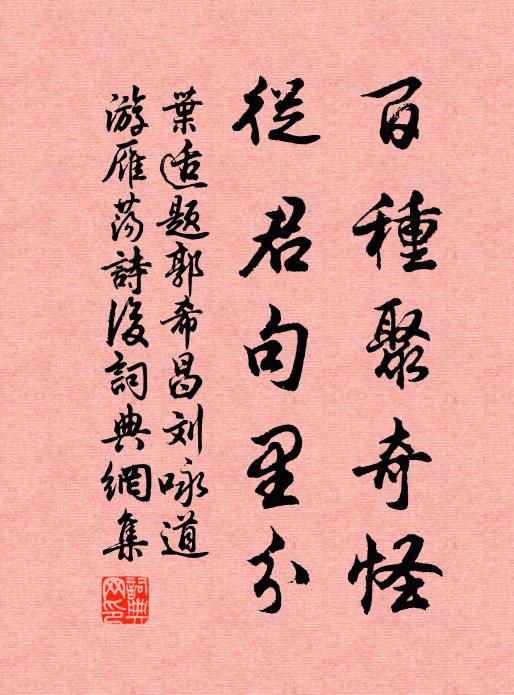 百種聚奇怪
從君句里分
葉适題郭希昌刘咏道
游雁荡詩後詞典網集
詞典网印